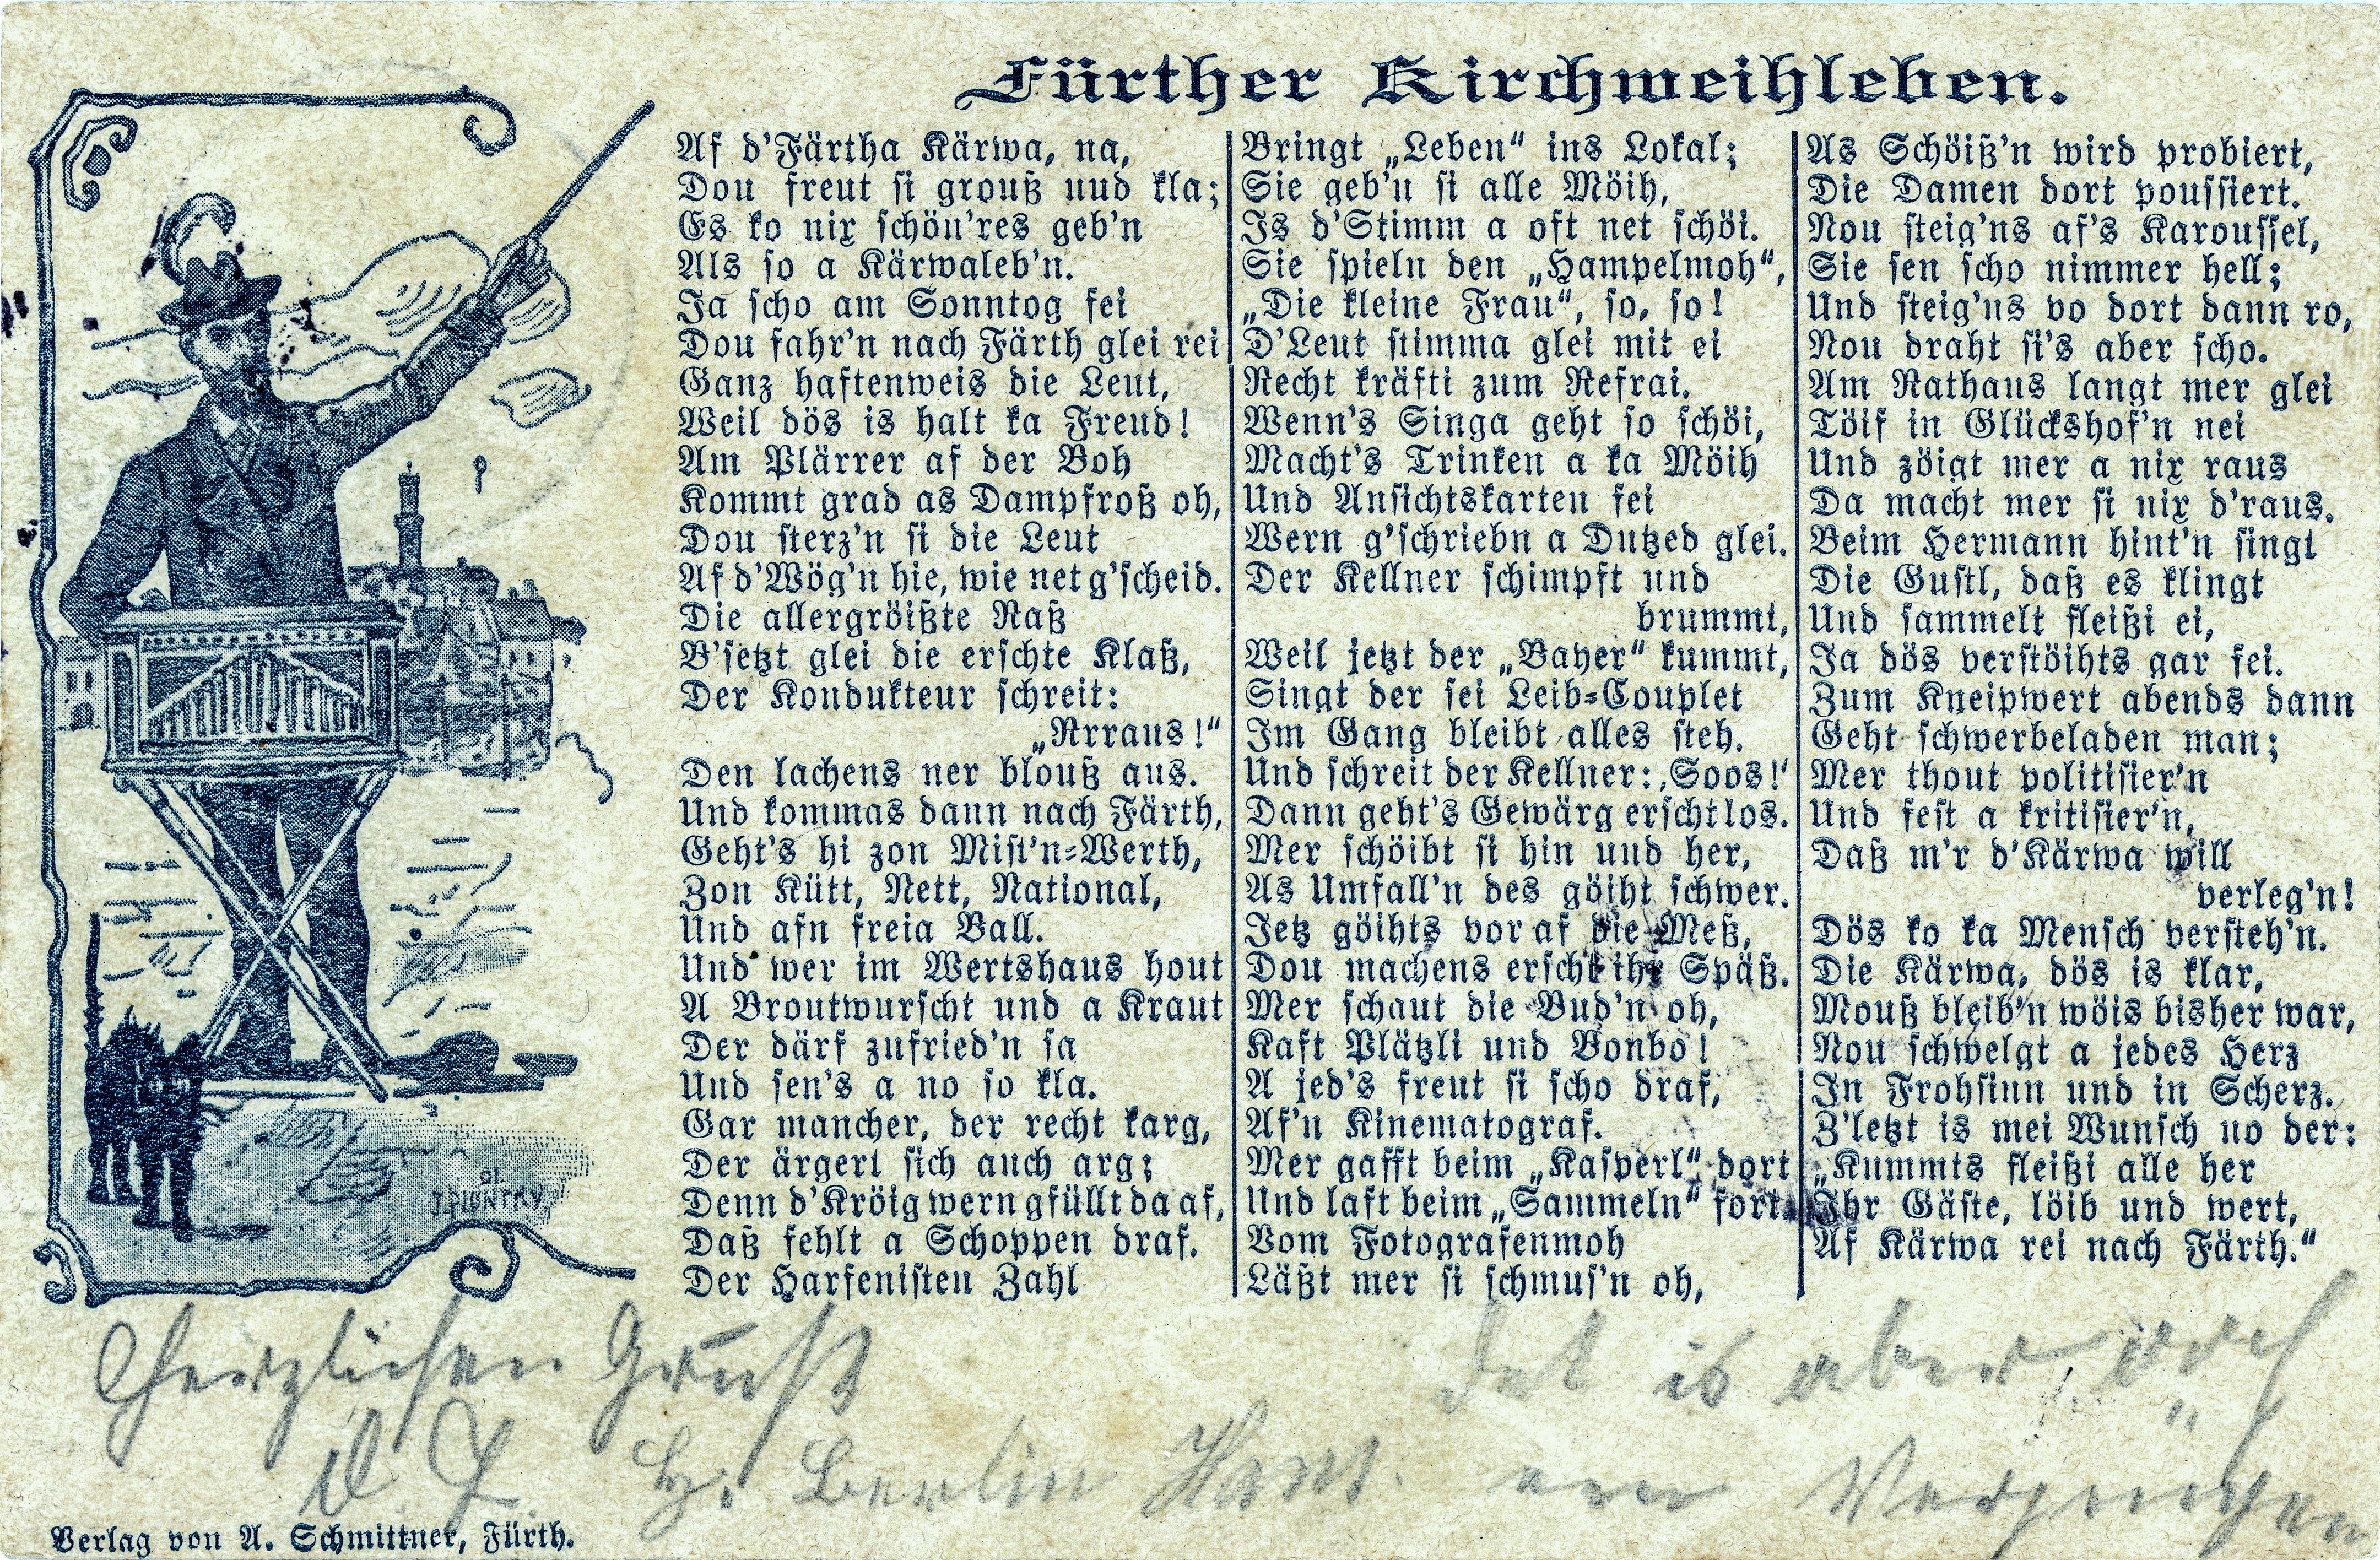 Fürther Kirchweihleben.
Af d'Färtha Kärwa, na,
Dou freut si grouß uud kla;
Es ko nix schön'res geb'n
Als so a Kärwaleb'n.
Ja scho am Sonntog fei
Dou fahr'n nach Färth glei rei
Ganz haftenweis die Leut,
Weil dös is halt ka Freud!
Am Plärrer af der Boh
Kommt grad as Dampfroß oh,
Dou sterz'n si die Leut
Af d'Wög'n hie, wie net g'scheid.
Die allergröißte Raß
B'setzt glei die erschte Klaß,
Der Kondukteur schreit:
„Rrraus!“
Den lachens ner blouß aus.
Und kommas dann nach Färth,
Geht's hi zon Mist'n-Werth,
Zon Kütt, Nett, National,
Und afn freia Ball.
Und wer im Wertshaus hout
A Broutwurscht und a Kraut
Der därf zufried'n sa
Und sen's a no so kla.
Gar mancher, der recht karg,
Der ärgert sich auch arg;
Denn d'Kröig wern gfüllt da af,
Daß fehlt a Schoppen draf.
Der Harfenisten Zahl
Bringt „Leben“ ins Lokal;
Sie geb'n si alle Möih,
Is d'Stimm a oft net schöi.
Sie spieln den „Hampelmoh“,
„Die kleine Frau“, so, so!
D'Leut stimma glei mit ei
Recht kräfti zum Refrai.
Wenn's Singa geht so schöi,
Macht's Trinken a ka Möih
Und Ansichtskarten fei
Wern g'schriebn a Dutzed glei.
Der Kellner schimpft und
brummt,
Weil jetzt der „Bayer“ kummt,
Singt der sei Leib-Couplet
Im Gang bleibt alles steh.
Und schreit der Kellner: ‚Soos!‘
Dann geht's Gewärg erscht los.
Mer schöibt si hin und her,
As Umfall'n des göiht schwer.
Jetz göihts vor af die Meß,
Dou machens erscht ihr Späß.
Mer schaut die Bud'n oh,
Kaft Plätzli und Bonbo!
A jed's freut si scho draf,
Af'n Kinematograf.
Mer gafft beim „Kasperl“ dort
Und laft beim „Sammeln“ fort.
Vom Fotografenmoh
Läßt mer si schmus'n oh,
As Schöiß'n wird probiert,
Die Damen dort poussiert.
Nou steig'ns af's Karoussel,
Sie sen scho nimmer hell;
Und steig'ns vo dort dann ro,
Nou draht si's aber scho.
Am Rathaus langt mer glei
Töif in Glückshof'n nei
Und zöigt mer a nix raus
Da macht mer si nix d'raus.
Beim Hermann hint'n singt
Die Gustl, daß es klingt
Und sammelt fleißi ei,
Ja dös verstöihts gar fei.
Zum Kneipwert abends dann
Geht schwerbeladen man;
Mer thout politisier'n
Und fest a kritisier'n,
Daß m'r d'Kärwa will
verleg'n!
Dös ko ka Mensch versteh'n.
Die Kärwa, dös is klar,
Mouß bleib'n wöis bisher war,
Nou schwelgt a jedes Herz
In Frohsinn und in Scherz.
Z'letzt is mei Wunsch no der:
„Kummts fleißi alle her
Ihr Gäste, löib und wert,
Af Kärwa rei nach Färth.“
Herzlichen Gruß
Det is aber
H. Berlin Hans. een Vergnügen
Verlag von A. Schmittner, Fürth.